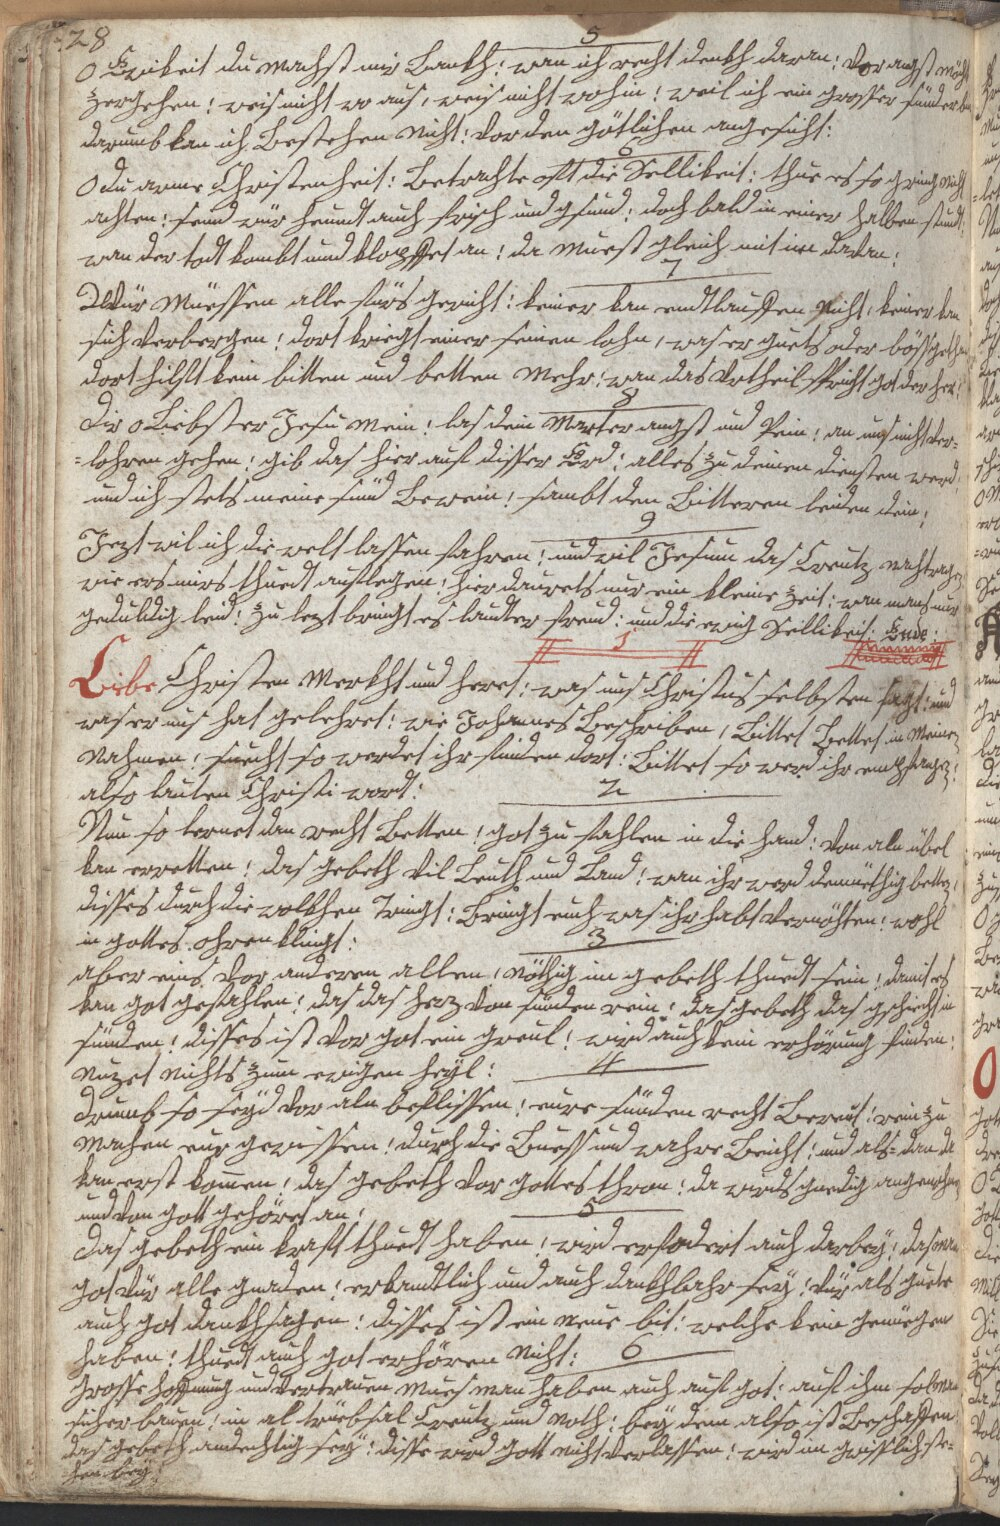 28
5
O Ewikeit du machst mir bankh: wan ich recht denkh daran: vor angst mecht
zergehen: weis nicht wo aus, weis nicht wohin: weil ich ein grosser sünder bin
darumb kan ich bestehen nicht: vor den götlichen angesicht:
6
O du arme Christenheit: betrachte oft die Sellikeit: thue es so gring nicht
achten: seind wür heundt auch frisch und gsund: doch bald in einer halben stundt:
wan der todt kombt und klopffet an: da muest gleich mit im davan:
7
Wür müessen alle fürs gericht: keiner kan endtlauffen nicht, keiner kan
sich verbergen: dort kriegt einer seinen lohn, was er guets oder böss gethan
dort hilft kein bitten und betten mehr: wan das urtheil spricht got der her:
8
Dir o liebster Jesu mein: las dein marter angst und Pein: an uns nicht ver=
=lohren gehen: gib das hier auf disser Erd: alles zu deinen diensten werd:
und ich stets meine sünd bewein: sambt den bitteren leiden dein:
9
Jezt wil ich die welt lassen fahren: und wil Jesum das Creutz nachtragen
wie ers mirs thuedt auflegen: hier daurets nur ein kleine zeit: wan mans nur
geduldig leid: zu lezt bringt es lauter freud: und die ewig Sellikeit: Ende:
1
Libe Christen merkht und heret: was uns Christus selbsten sagt: und
was er uns hat gelehret: wie Johannes beschriben, bittet bettet in meinen
Nahmen: suecht so werdet ihr finden dort: bittet so werd ihr empfangen:
also lauten Christi wort:
2
Nun so lernet dan recht betten, got zu fahlen in die hand: von aln übel
kan erretten: das gebeth vil leuth und land: wan ihr werd demüethig betten,
disses durch die wolkhen tringt: bringt euch was ihr habt vernöhten: wohl
in gottes ohren klingt:
3
aber eins vor anderen allen, nöthig im gebeth thuedt sein: damit es
kan got gefahlen: das das herz von sünden rein: das gebeth das gschiecht in
sünden: disses ist vor got ein greul: wird auch kein erhörung finden:
nuzet nichts zum ewigen heyl:
4
Drumb so seyd vor aln beflissen: eure sünden recht bereut: rein zu
machen eur gewissen: durch die buess und wahre beicht: und als=dan da
kan erst komen, das gebeth vor gottes thron: da wirds gnedig angenohmen
und von gott gehöret an:
5
Das gebeth ein kraft thuedt haben: wird erfodert auch darbey: das man
got vür alle gnaden: erkandtlich und auch dankhbahr sey: vür als guete
auch got dankhsagen: disses ist ein neue bit: welche kein geniegen
haben: thuedt auch got erhören nicht:
6
Grosse hofnung und vertrauen mues man haben auch auf got: auf ihm sol man
sicher bauen: in al trüebsal Creutz und noth: bey dem also ist beschaffen
das gebeth andechtig sey: disse wird gott nicht verlassen: wird im gwisslich ste=
hen bey: